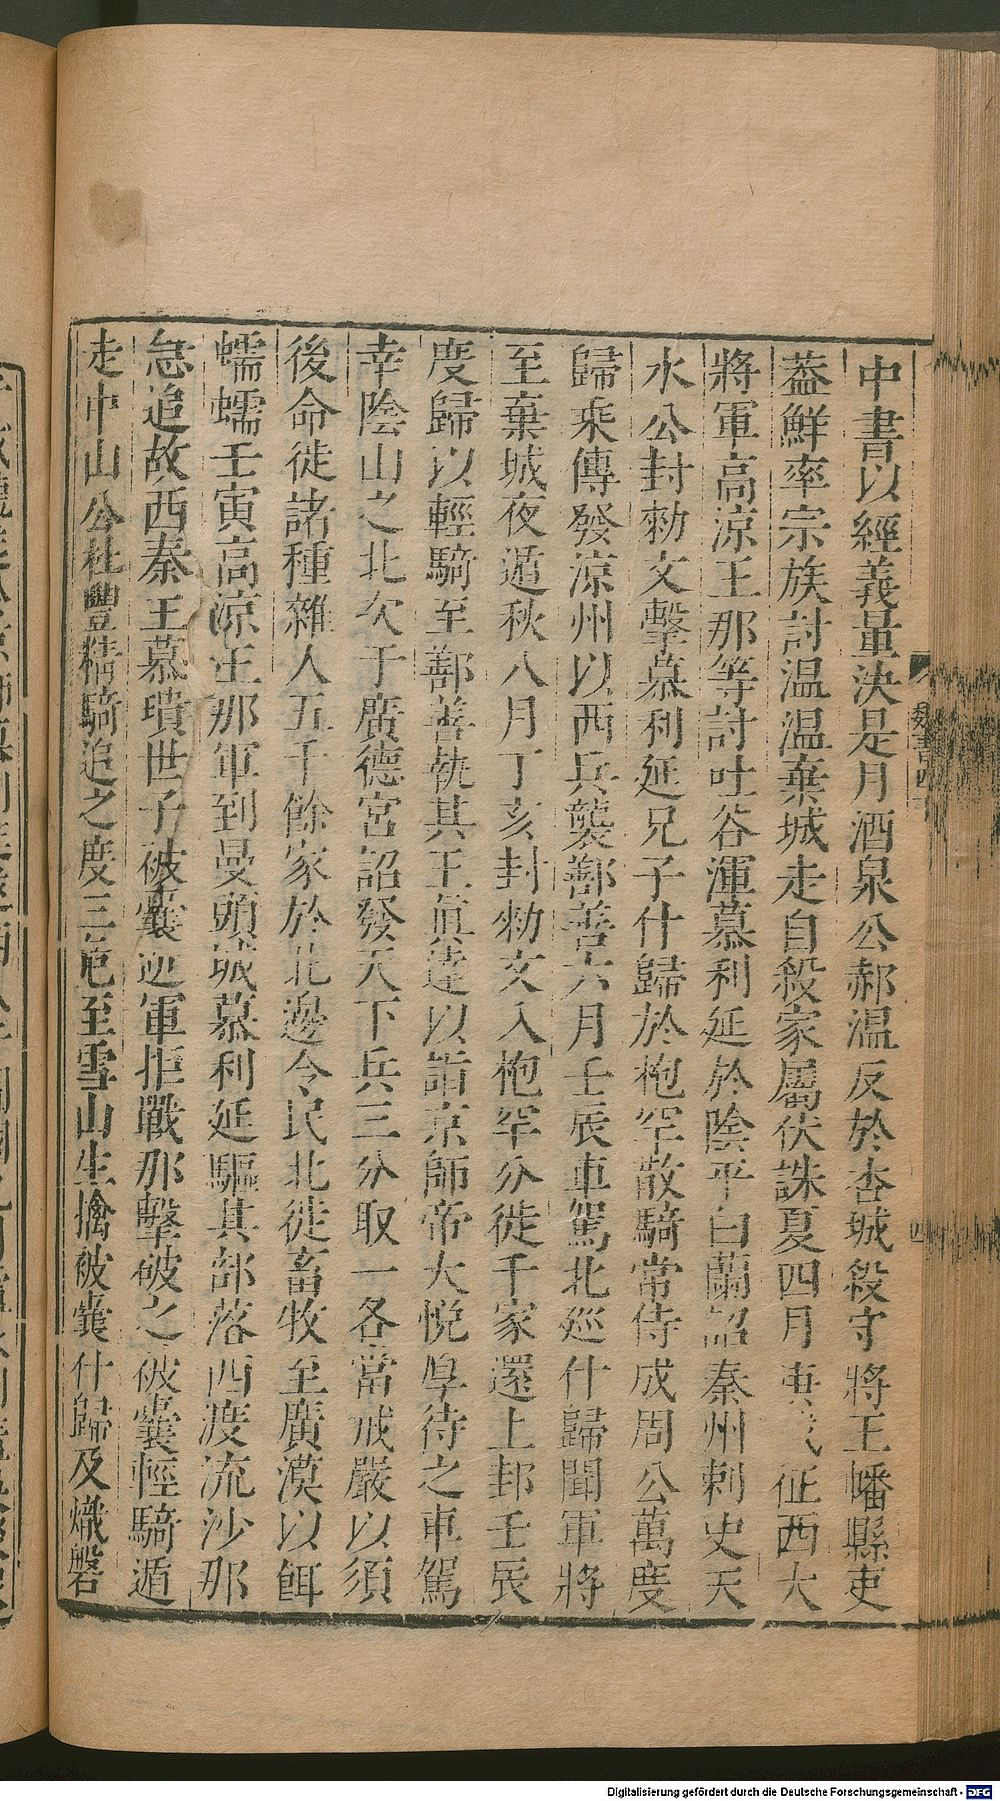 中書以經義量決是月酒泉公郝温反於杏城殺守將王幡縣吏
葢鮮率宗族討温温棄城走自殺家屬伏誅夏四月庚戌征西大
將軍高涼王那等討吐谷渾慕利延於陰平白蘭詔秦州刺史天
水公封勑文擊慕利延兄子什歸於枹罕散騎常侍成周公萬度
歸乘傳發涼州以西兵襲鄯善六月壬辰車駕北廵什歸聞軍將
至棄城夜遁秋八月丁亥封勑文入枹罕分徙千家還上邽壬辰
度歸以輕騎至鄯善執其王眞達以詣京師帝大悦厚待之車駕
幸陰山之北次于廣德宮詔發天下兵三分取一各當戒嚴以須
後命徙諸種雜人五千餘家於北邊令民北徙畜牧至廣漠以餌
蠕蠕壬寅高涼王那軍到曼頭城慕利延驅其部落西渡流沙那
急追故西秦王慕璝世子被囊逆軍拒戰那擊破之被囊輕騎遁
走中山公杜豐精騎追之度三危至雪山生擒被囊什歸及熾磐
魏書四
四
Digitalisierung gefördert durch die Deutsche Forschungsgemeinschaft - DFG